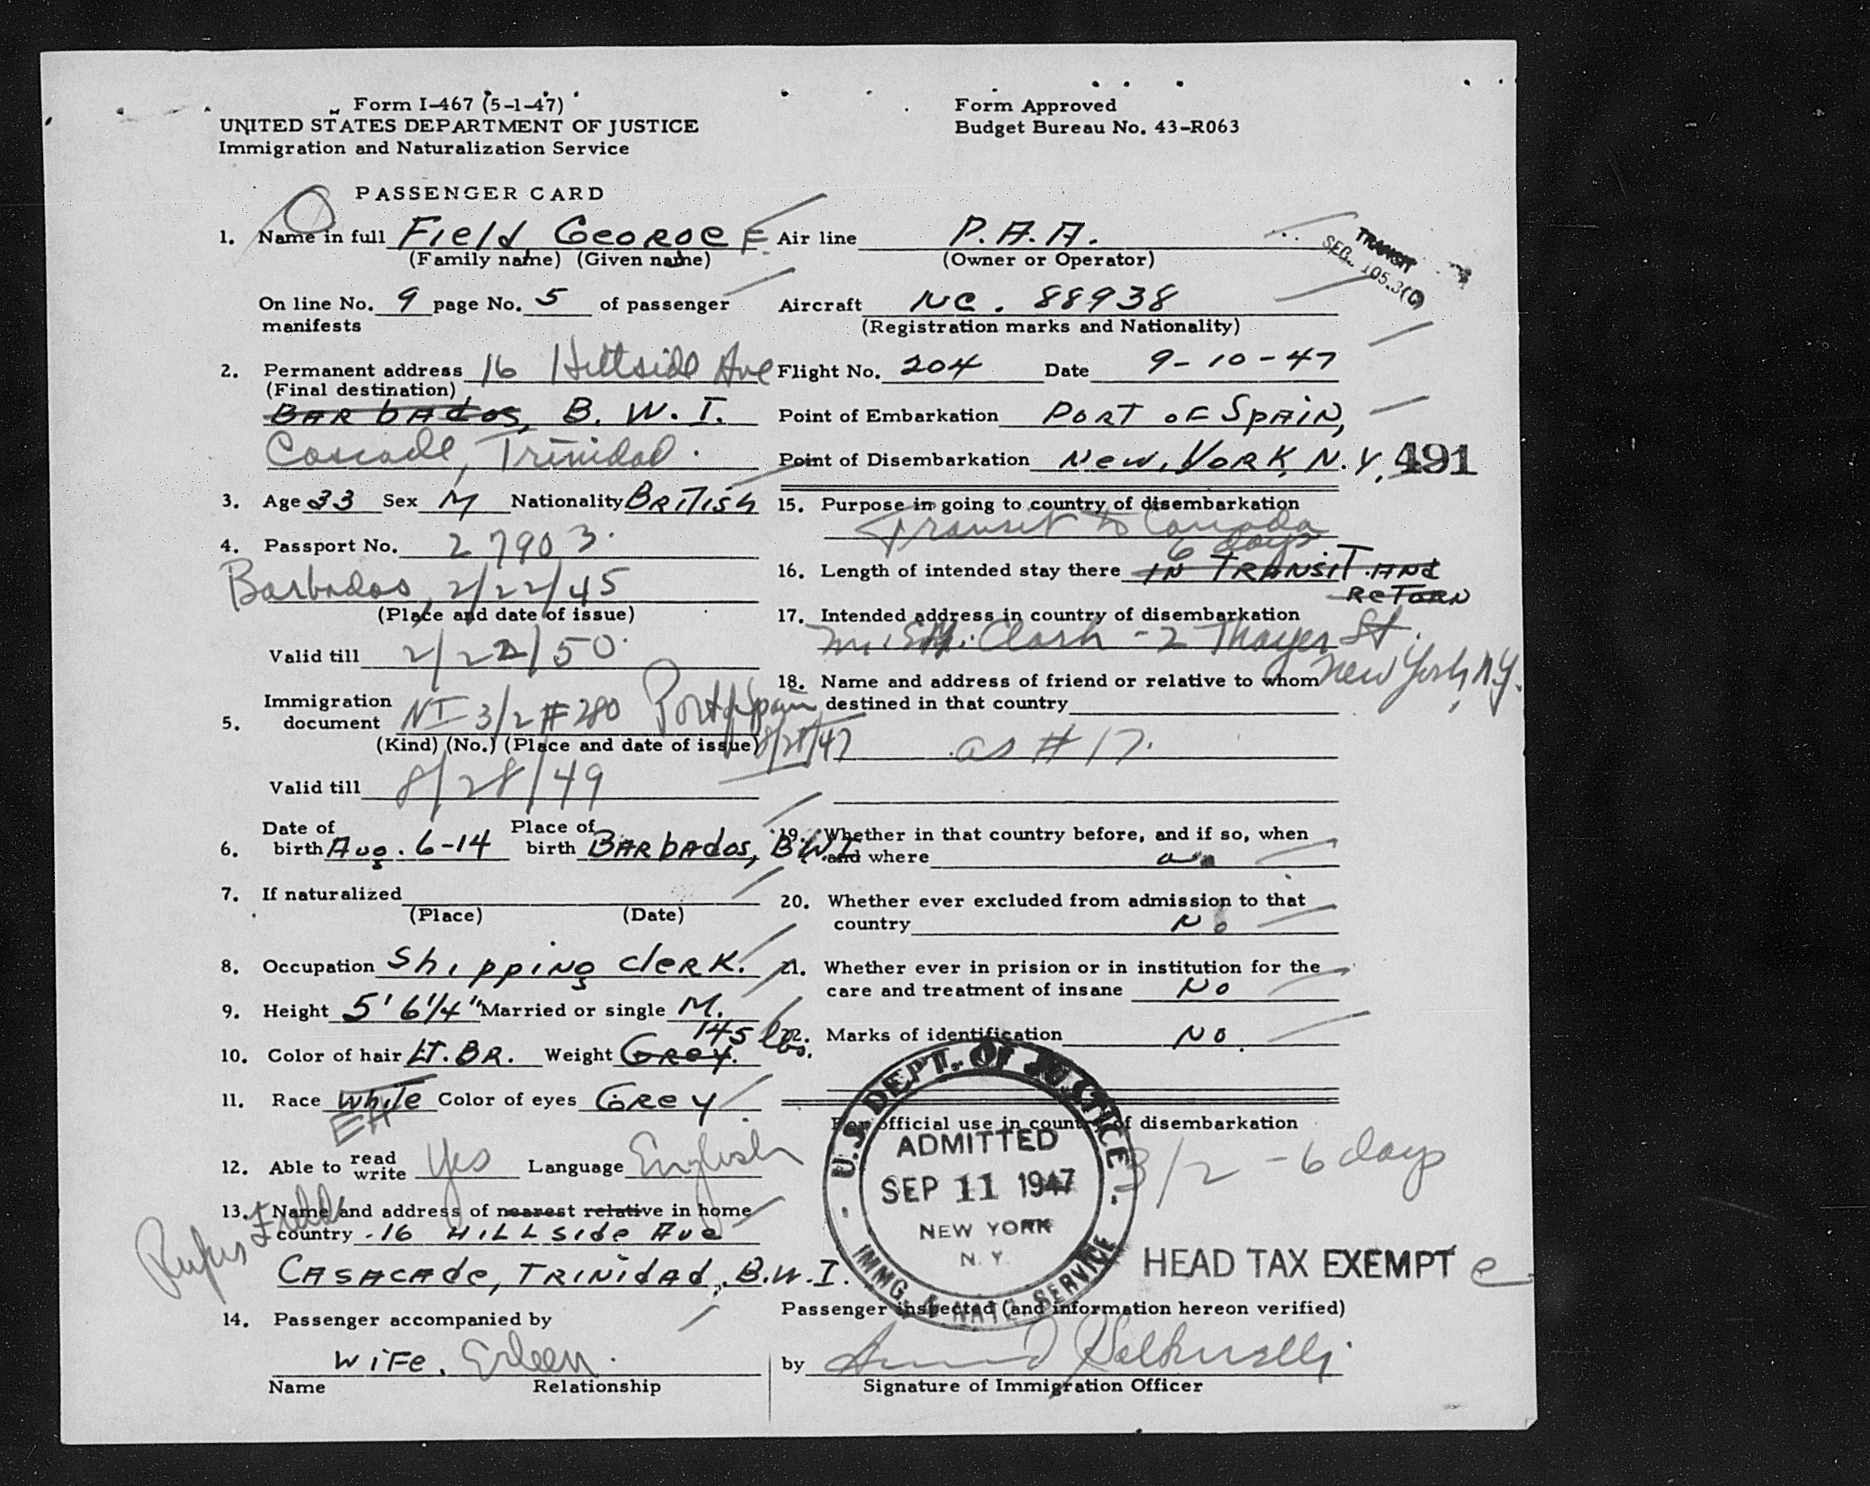 Form I-467 (5-1-47)
UNITED STATES DEPARTMENT OF JUSTICE
Immigration and Naturalization Service
Form Approved
Budget Bureau No. 43-R063
PASSENGER CARD
1. Name in full Field, George F.
(Family name) (Given name)
On line No. 9 page No. 5 of passenger
manifests
2. Permanent address 16 Hillside Ave
(Final destination)
Barbados, B. W. I.
Cascade, Trinidad.
3. Age 33 Sex M Nationality British
4. Passport No. 27903.
Barbados, 2/22/45
(Place and date of issue)
Valid till 2/22/50.
Immigration
5. document NI 3/2 # 280 Port of Spain
(Kind) (No.) (Place and date of issue) 8/28/47
Valid till 8/28/49
Date of Place of
6. birth Aug. 6-14 birth Barbados, BWI
7. If naturalized
(Place) (Date)
8. Occupation Shipping clerk.
9. Height 5' 6 1/4" Married or single M.
145 lbs.
10. Color of hair LT. BR. Weight Grey.
11. Race White Color of eyes Grey
EH
12. Able to read write Yes Language English
13. Name and address of nearest relative in home
Rufus Field
country 16 Hillside Ave
Casacade, Trinidad, B.W.I.
14. Passenger accompanied by
Wife, Eileen.
Name Relationship
Air line P.A.A.
(Owner or Operator)
TRANSIT
SEC. 105.3(C)
Aircraft NC. 88938
(Registration marks and Nationality)
Flight No. 204 Date 9-10-47
Point of Embarkation Port of Spain,
Point of Disembarkation New York, N.Y. 491
15. Purpose in going to country of disembarkation
Transit to Canada
6 days
16. Length of intended stay there in Transit and
Return
17. Intended address in country of disembarkation
Clark - 2 Thayer St.
New York, N.Y.
18. Name and address of friend or relative to whom
destined in that country
as # 17.
19. Whether in that country before, and if so, when
and where
20. Whether ever excluded from admission to that
country No
21. Whether ever in prision or in institution for the
care and treatment of insane No
22. Marks of identification No.
For official use in country of disembarkation
U.S. DEPT. OF JUSTICE
ADMITTED
SEP 11 1947
NEW YORK
N. Y.
IMMG. & NATZ. SERVICE
3/2 - 6 days
HEAD TAX EXEMPT
Passenger inspected (and information hereon verified)
by
Signature of Immigration Officer